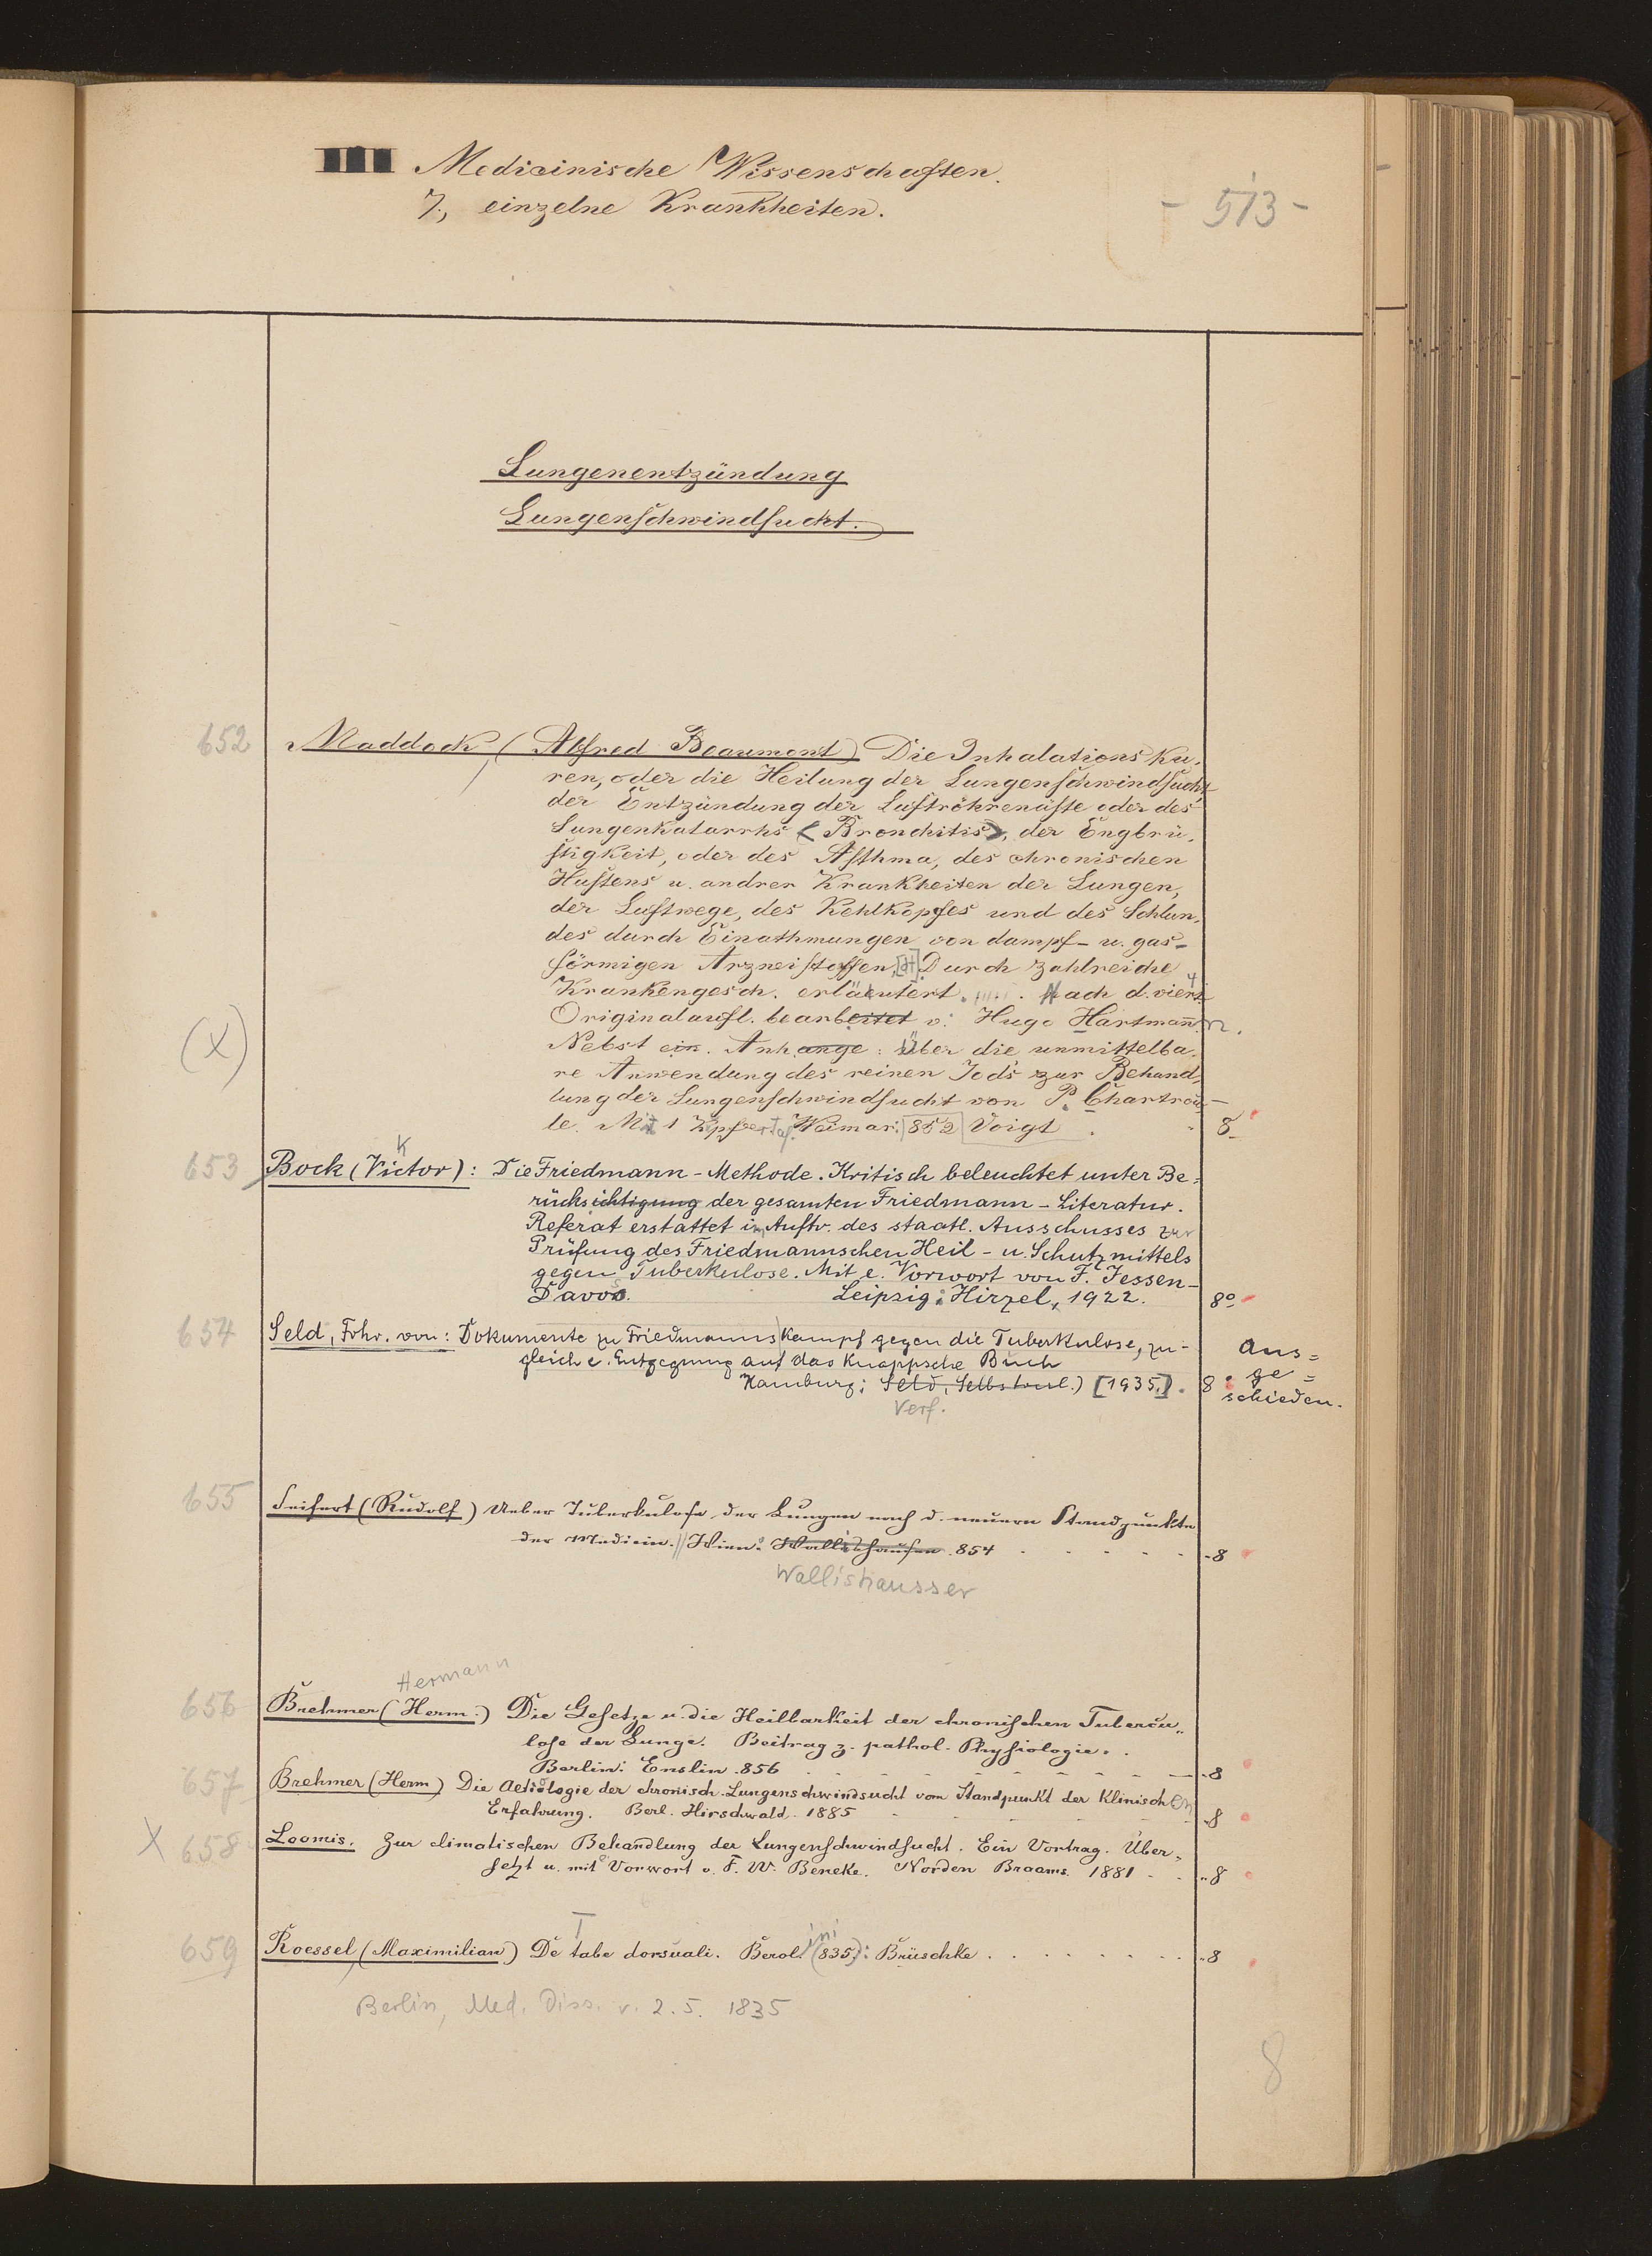 III Medicinische Wissenschaften.
7., einzelne Krankheiten.
- 513 -
Lungenentzündung
Lungenschwindsucht.
652 Maddock, (Alfred Beaumont) Die Inhalations Ku-
ren, oder die Heilung der Lungenschwindsucht,
der Entzündung der Luftröhrenäste oder des
Lungenkatarrhs (Bronchitis), der Engbrü-
stigkeit, oder des Asthma, des chronischen
Hustens u. andrer Krankheiten der Lungen,
der Luftwege, des Kehlkopfes und des Schlun-
des durch Einathmungen von dampf- u. gas-
förmigen Arzneistoffen. Durch zahlreiche
Krankengesch. erläutert. Nach d. viert. 4
(X) Originalaufl. bearbeitet v. Hugo Hartmann.
Nebst ein. Anhange: Über die unmittelba-
re Anwendung des reinen Jods zur Behand-
lung der Lungenschwindsucht von P. Chartrou-
le. Mit 1 Kpfertaf. Weimar: 852 Voigt . - 8-
K
653 Bock (Victor): Die Friedmann-Methode. Kritisch beleuchtet unter Be-
rücksichtigung der gesamten Friedmann-Literatur.
Referat erstattet im Auftr. des staatl. Ausschusses zur
Prüfung des Friedmannschen Heil- u. Schutzmittels
gegen Tuberkulose. Mit e. Vorwort von F. Jessen-
Davos. Leipzig: Hirzel, 1922. 8°
654 Seld, Frhr. von: Dokumente zu Friedmanns Kampf gegen die Tuberkulose, zu-
gleich e. Entgegnung auf das Knappsche Buch
Hamburg: Seld, Selbstverl.) [1935.]. 8
Verf.
Aus=
ge=
schieden.
655 Seifert (Rudolf) Ueber Tuberkulose der Lungen nach d. neuern Standpunkte
der Medicin. Wien: Wallishausen 854 . . . . . -8
Wallishausser
Hermann
656 Brehmer (Herm.) Die Gesetze u. die Heilbarkeit der chronischen Tubercu-
lose der Lunge. Beitrag z. pathol. Physiologie.
Berlin: Enslin 856 . - - - - - - -8
657 Brehmer (Herm) Die Aetiologie der chronisch. Lungenschwindsucht vom Standpunkt der Klinischen
Erfahrung. Berl. Hirschwald. 1885 - - - - -8
X 658 Loomis. Zur climatischen Behandlung der Lungenschwindsucht. Ein Vortrag. Über-
setzt u. mit Vorwort v. F. W. Beneke. Norden Braams. 1881 - . -8
659 Roessel, (Maximilian) De Tabe dorsuali. Berolini (835): Brüschke . . . . . . . -8
Berlin, Med. Diss. v. 2.5. 1835
8